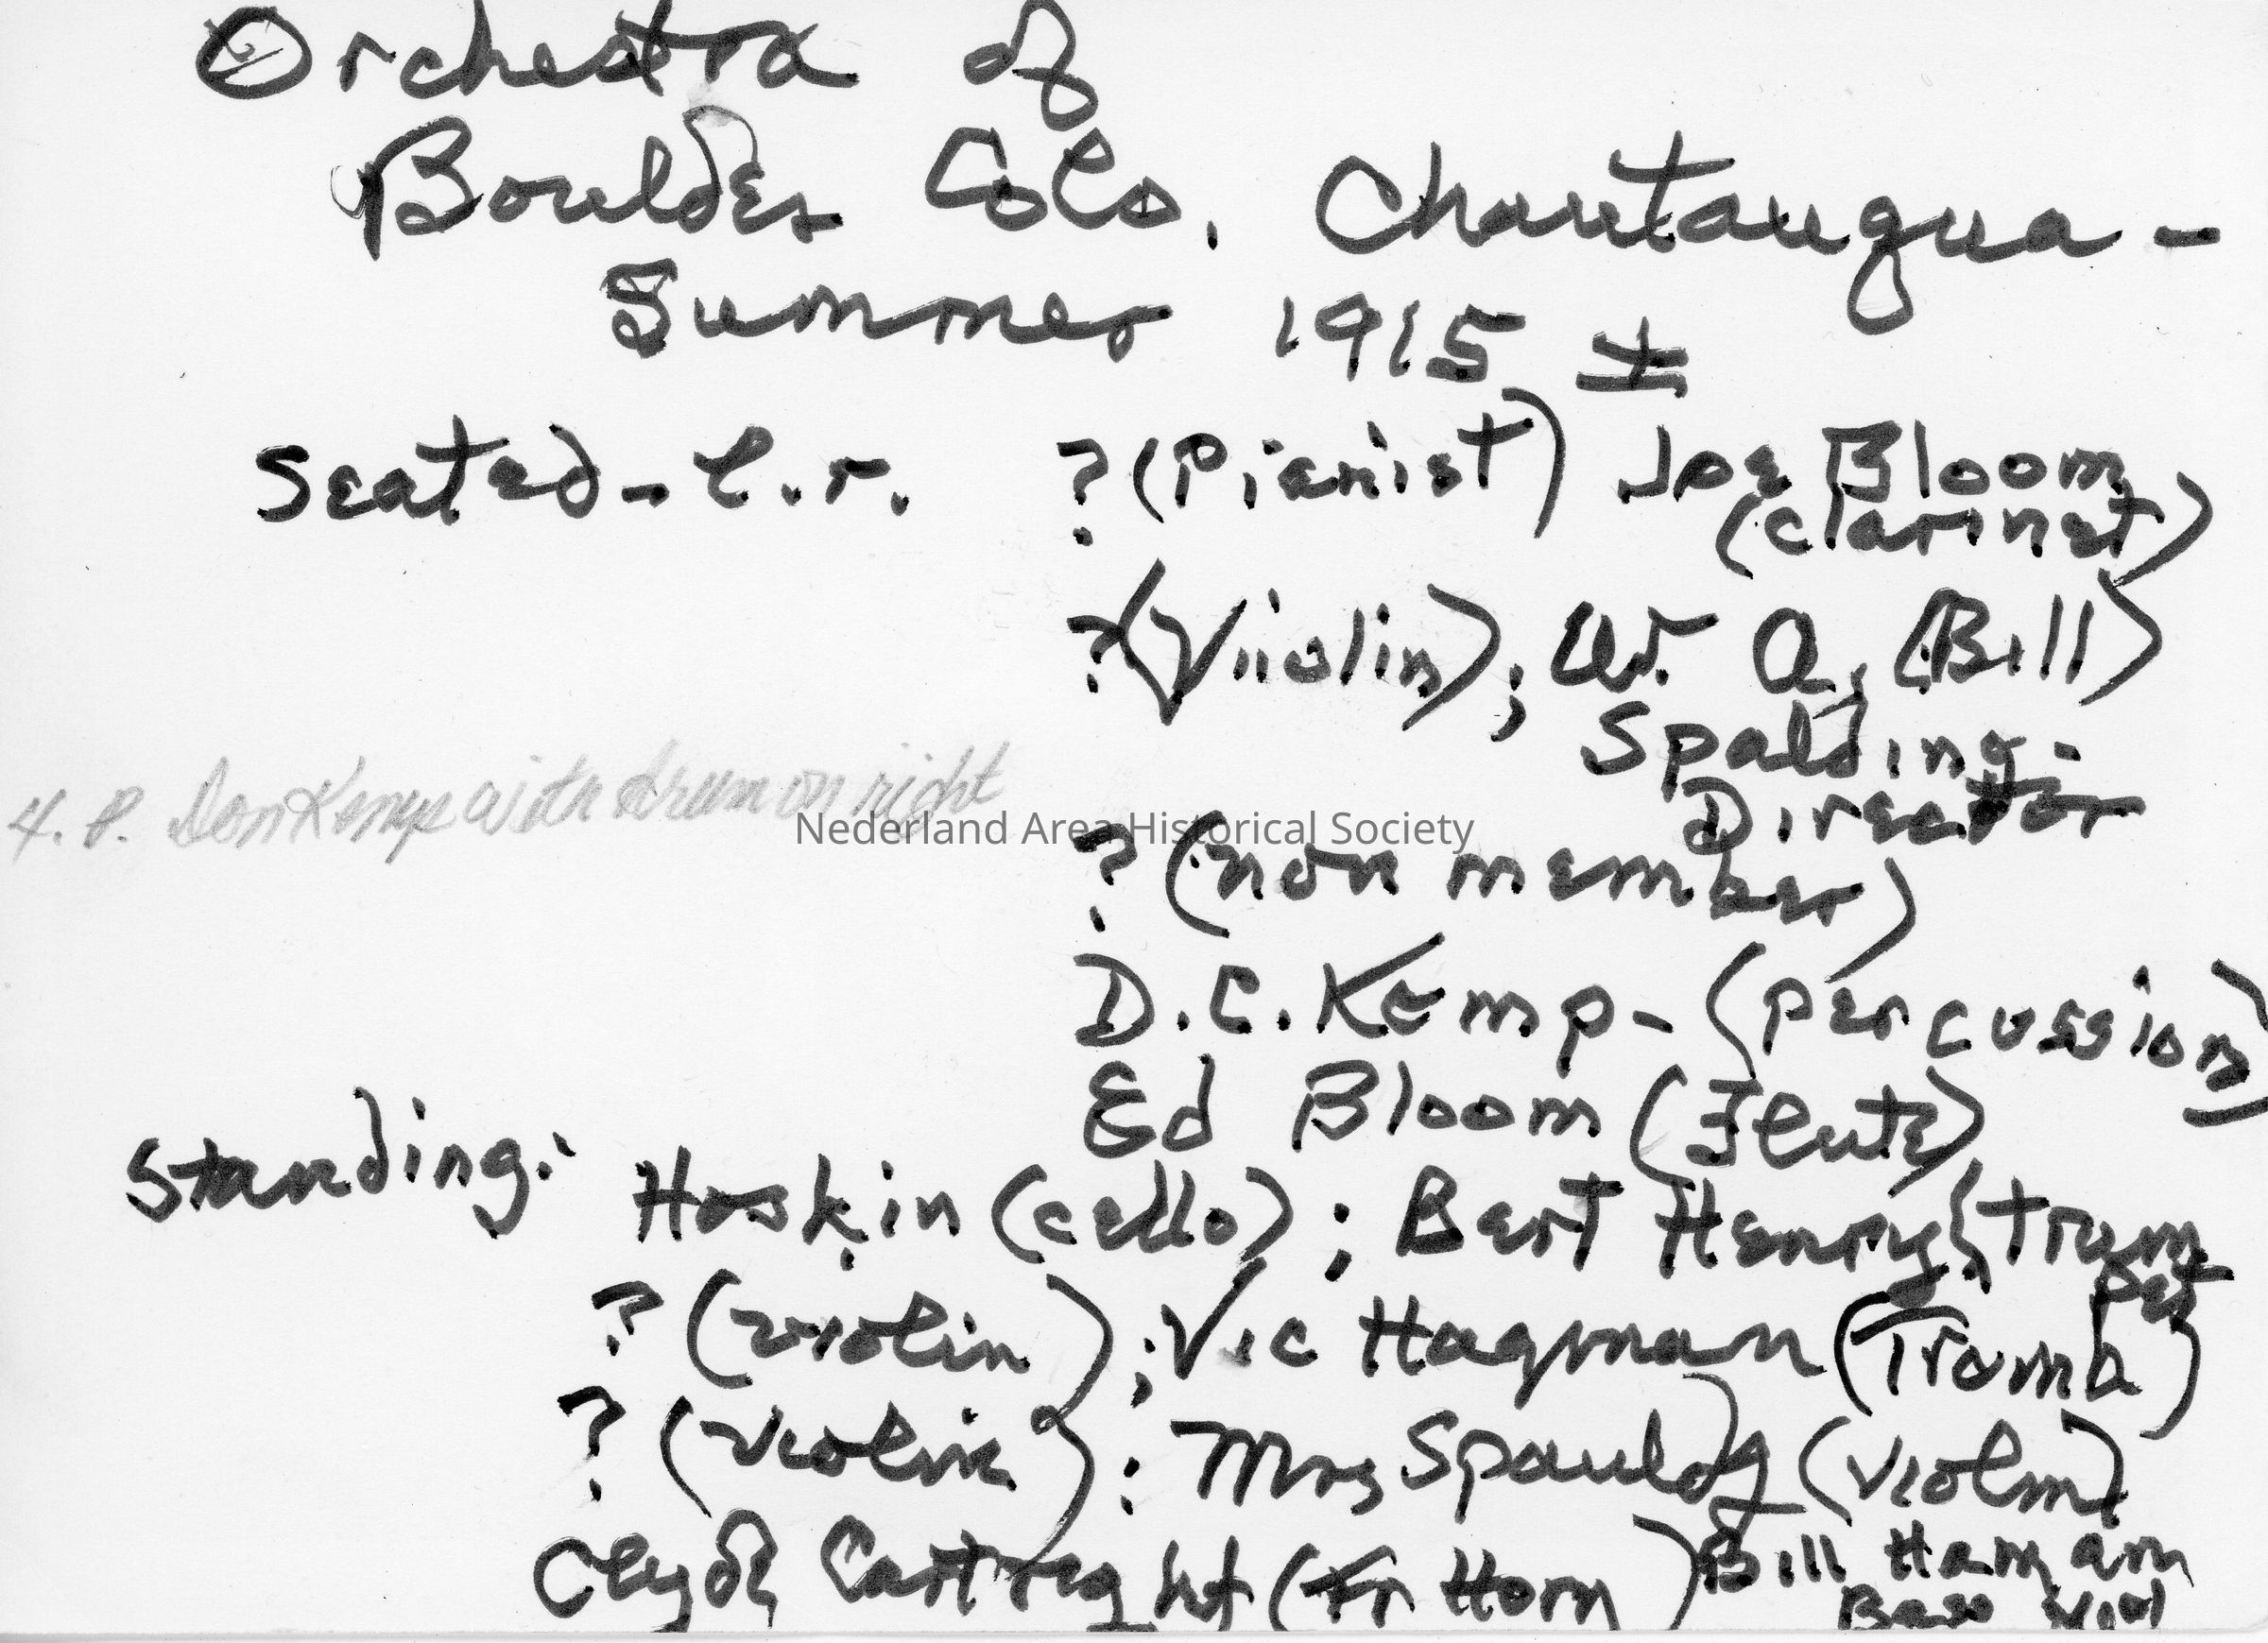 Orchestra of
Boulder Colo. Chautauqua -
Summer 1915 ±
Seated - l.r. ? (Pianist) Joe Bloom
(clarinet)
? (Viiolin); W. A. (Bill)
Spalding -
Director
4. P. Don Kemp with drum on right
Nederland Area Historical Society
? (non member)
D. C. Kemp - (percussion)
Ed Bloom (Flute)
Standing: Hoskin (cello); Bert Henry (trum
pet
? (violin); Vic Hagman (Tromb)
? (violin): Mrs Spauldg (violin)
Clyde Cartreght (Fr Horn) Bill Hamam
Bass Viol